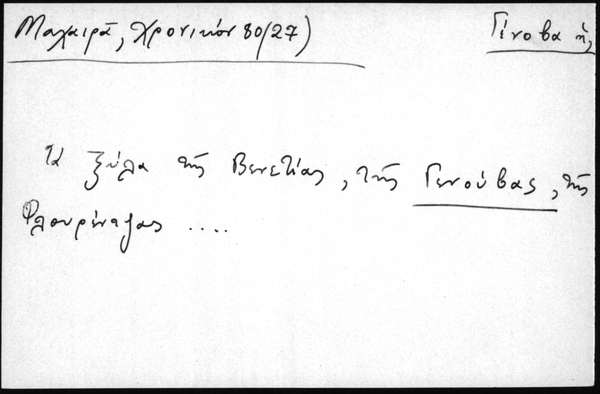 Μαχαιρᾶ, Χρονικόν 80/27)
Γένοβα ἡ,
τὰ ξύλα τῆς Βενετίας, τῆς Γενούβας, τῆς
Φλουρέντζας ....